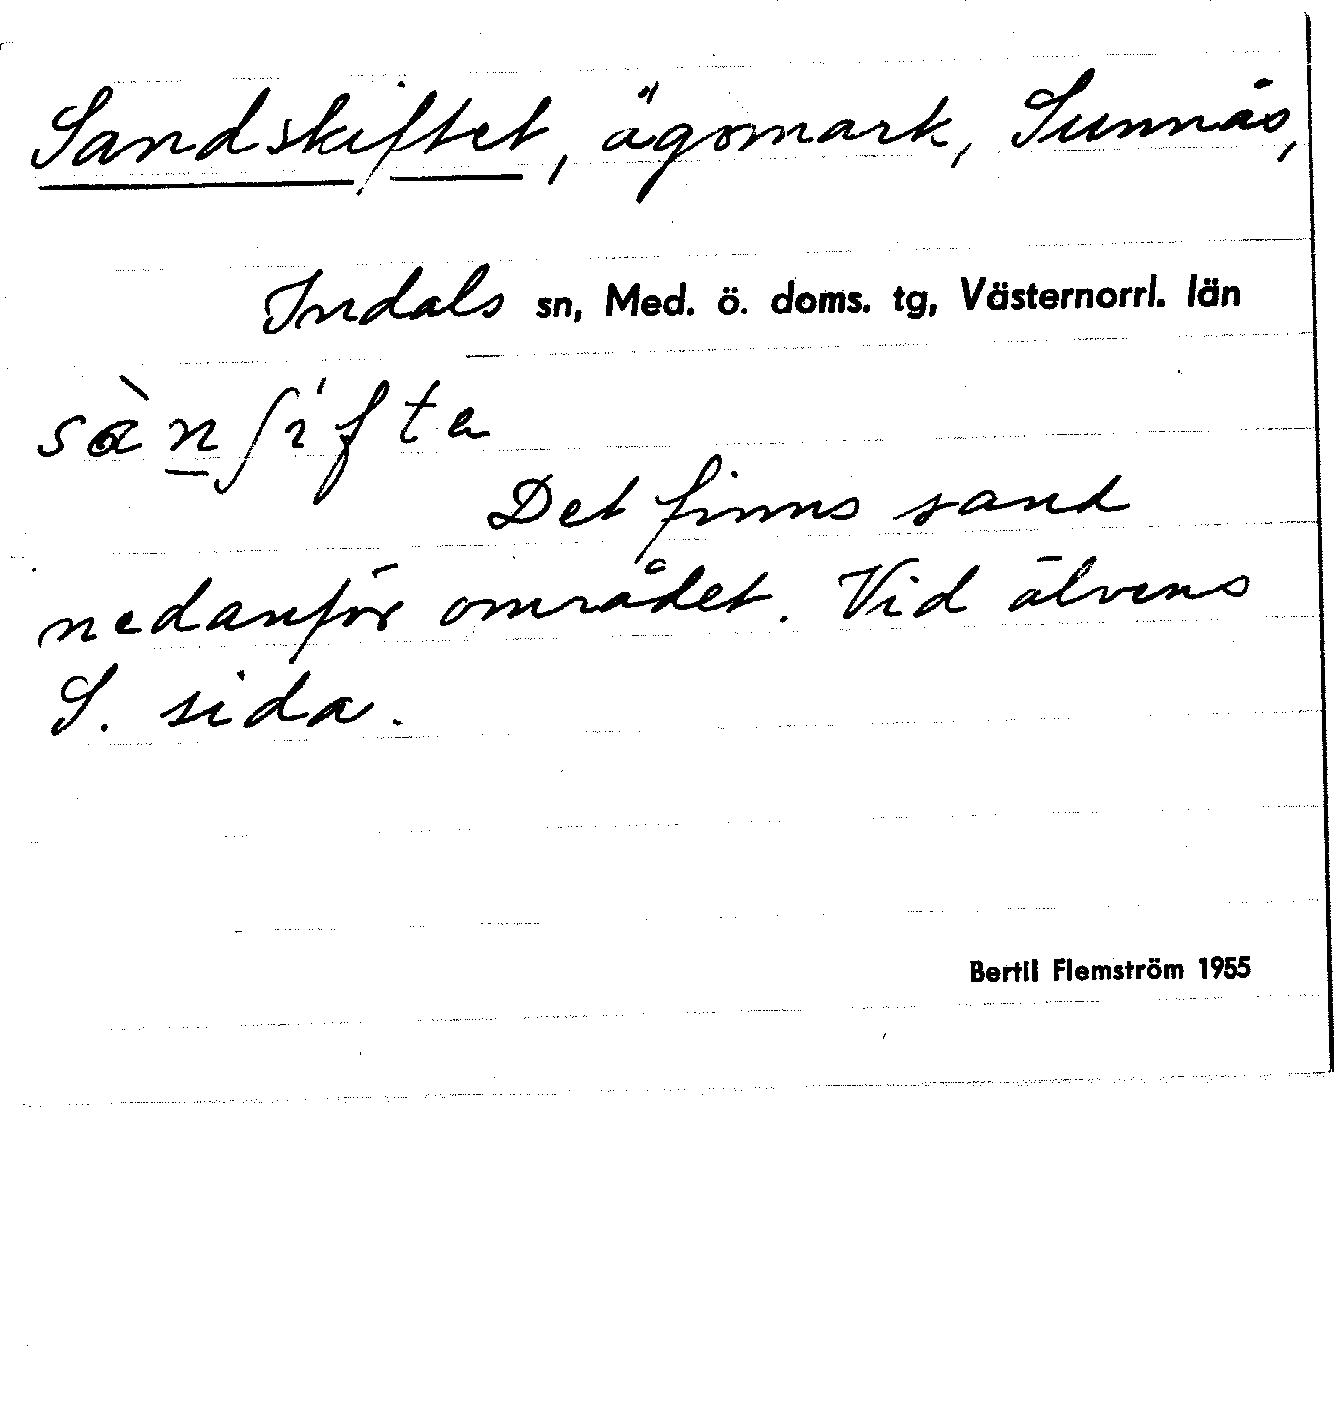 Sandskiftet, ägomark, Sunnäs,
Indals sn, Med. ö. doms. tg, Västernorrl. län
sàn̲ʃifta
Det finns sand
nedanför området. Vid älvens
S. sida.
Bertil Flemström 1955